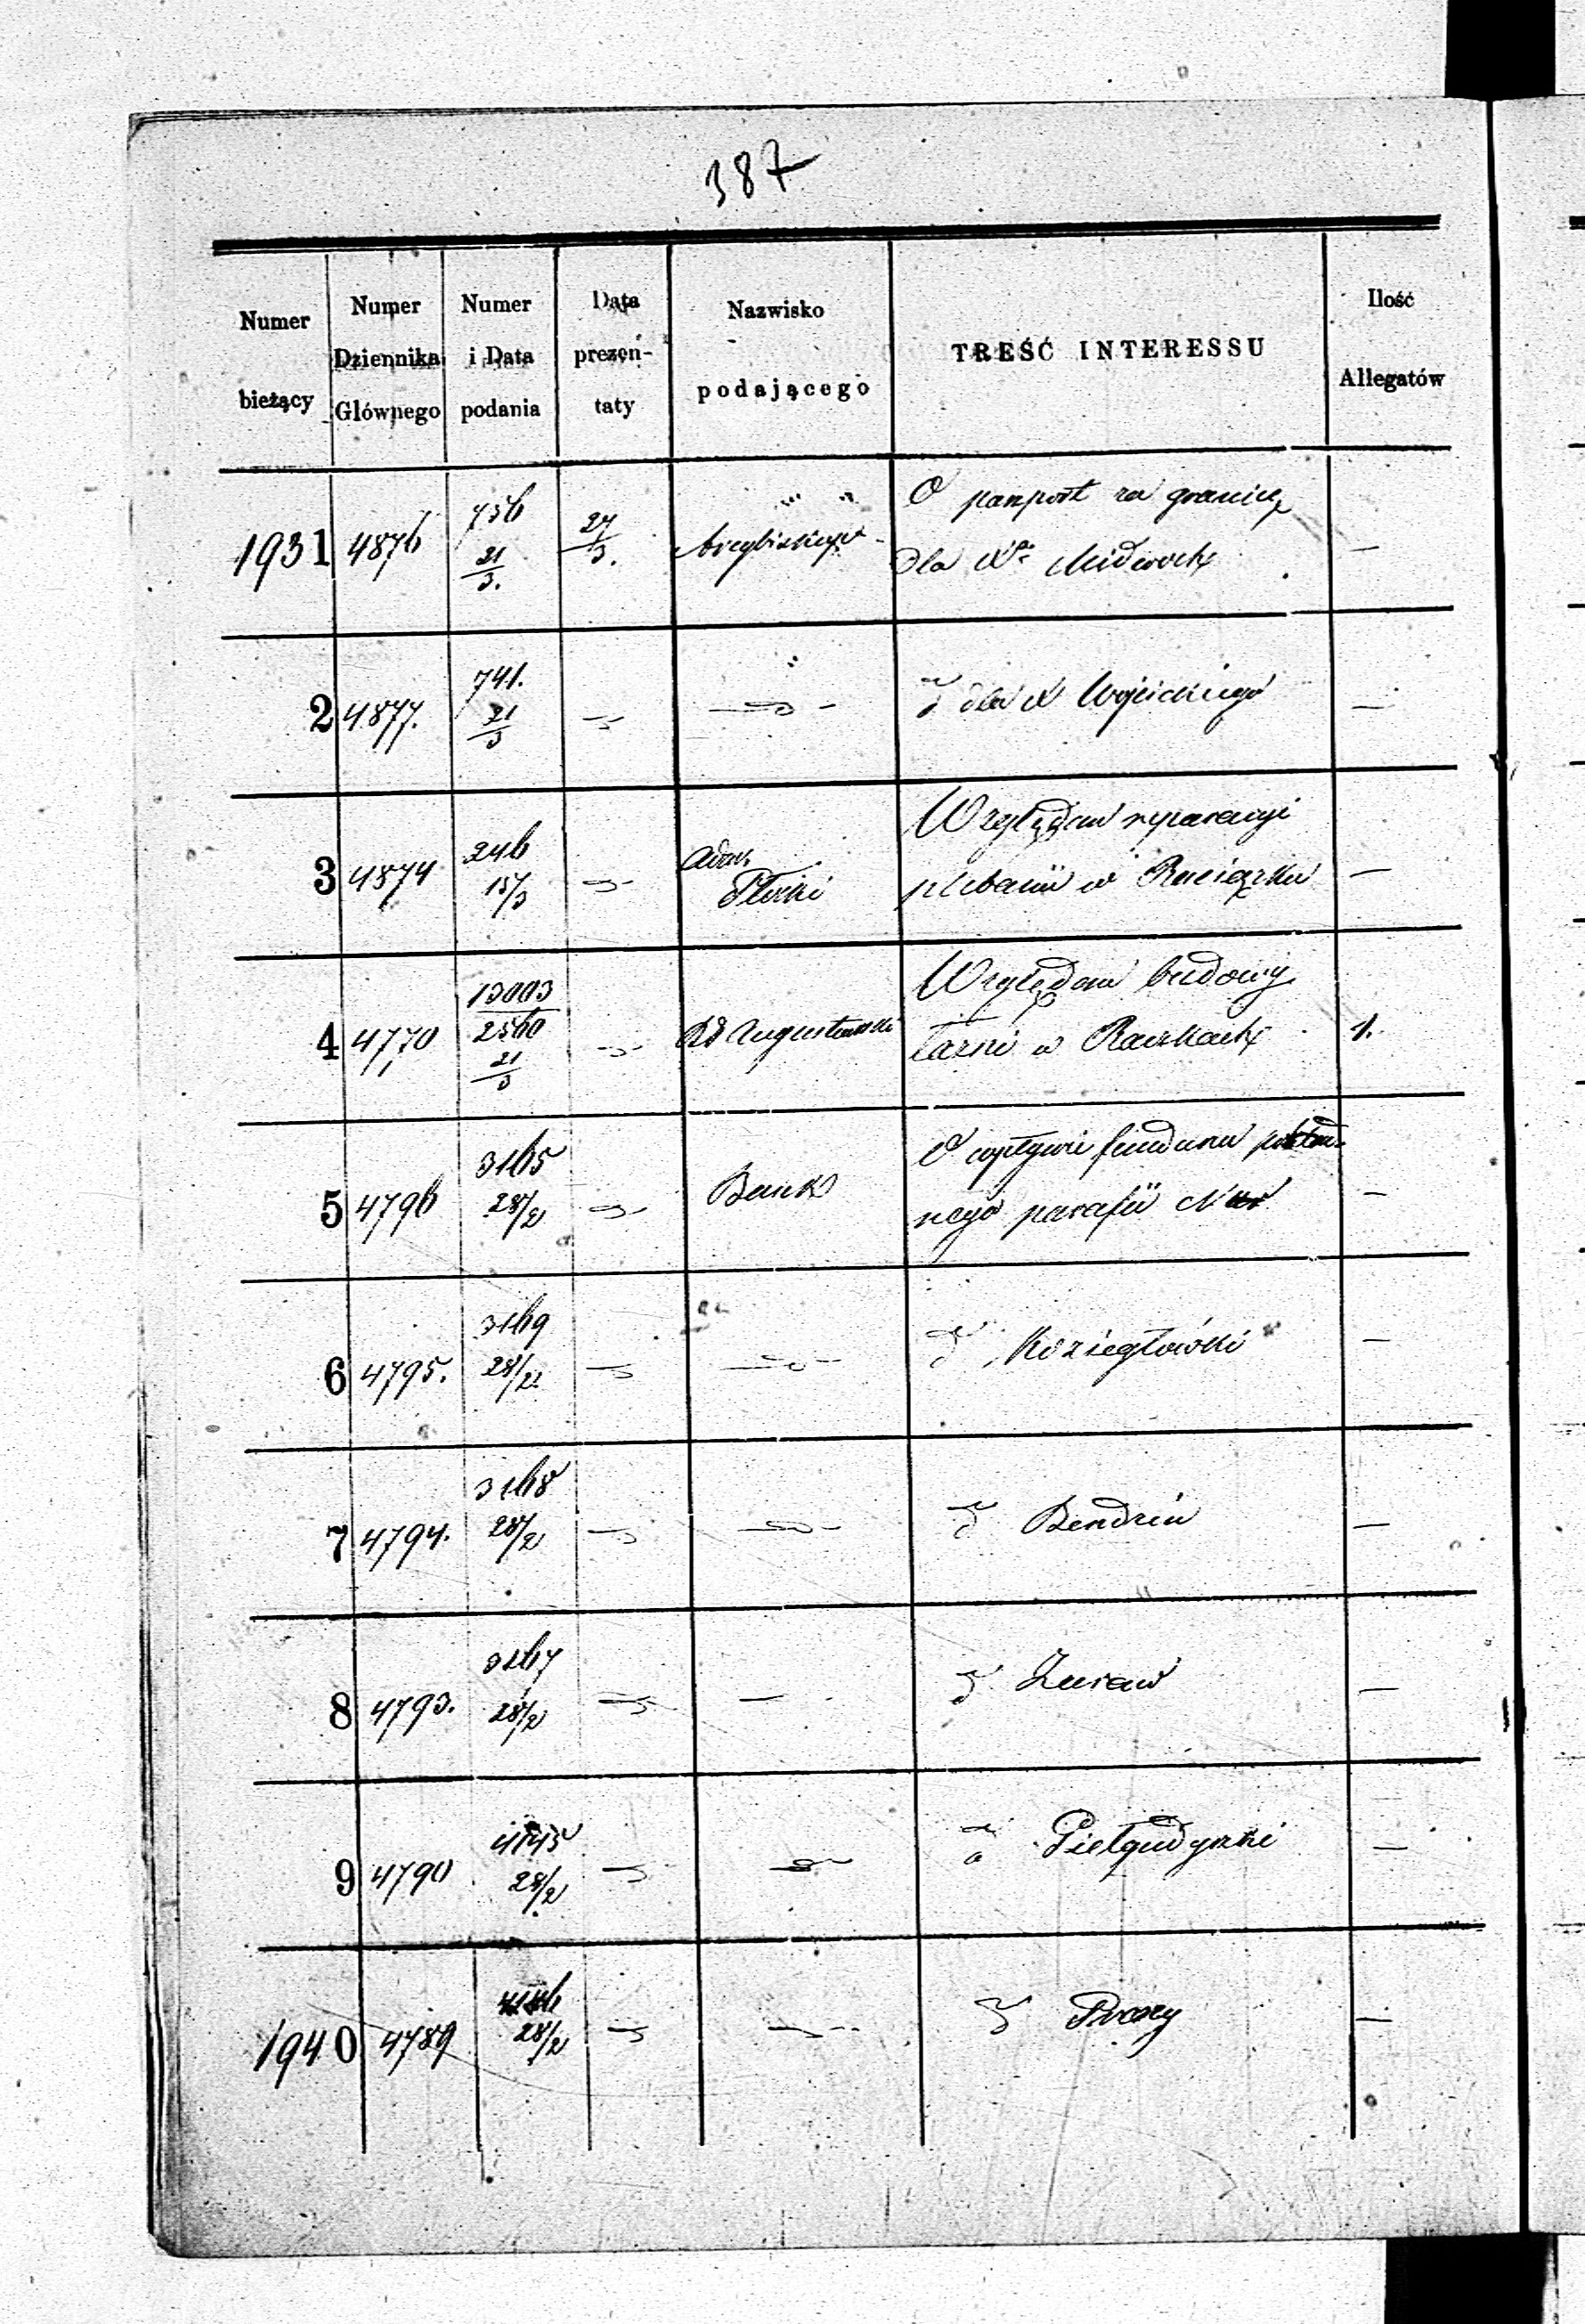 387
Numer bieżący
Numer Dziennika Głównego
Numer i Data podania
Data prezen-taty
Nazwisko podającego
TREŚĆ INTERESSU
Ilość Allegatów
1931 4876 736 21/3. 27/3. Arcybiskup O paszport za granicę —
dla
2 4877. 741. 21/3 — — dla X Wojcickiego —
3 4874 246 15/3 — Adm. Płocki Względem reparacyi —
plebanii w Raciążku
4 4770 13003 2560 21/3 — Rd Augustowski Względem budowy 1.
łazni w Raczkach
5 4796 3165 28/2 — Bank O wpływie funduszu
nego parafii —
6 4795. 3169 28/2 — — d Koziegłówki —
7 4794. 3168 28/2 — — d Bendzin —
8 4793. 3167 28/2 — — d Zuraw —
9 4790 4145 28/2 — — d —
1940 4789 4146 28/2 — — d —